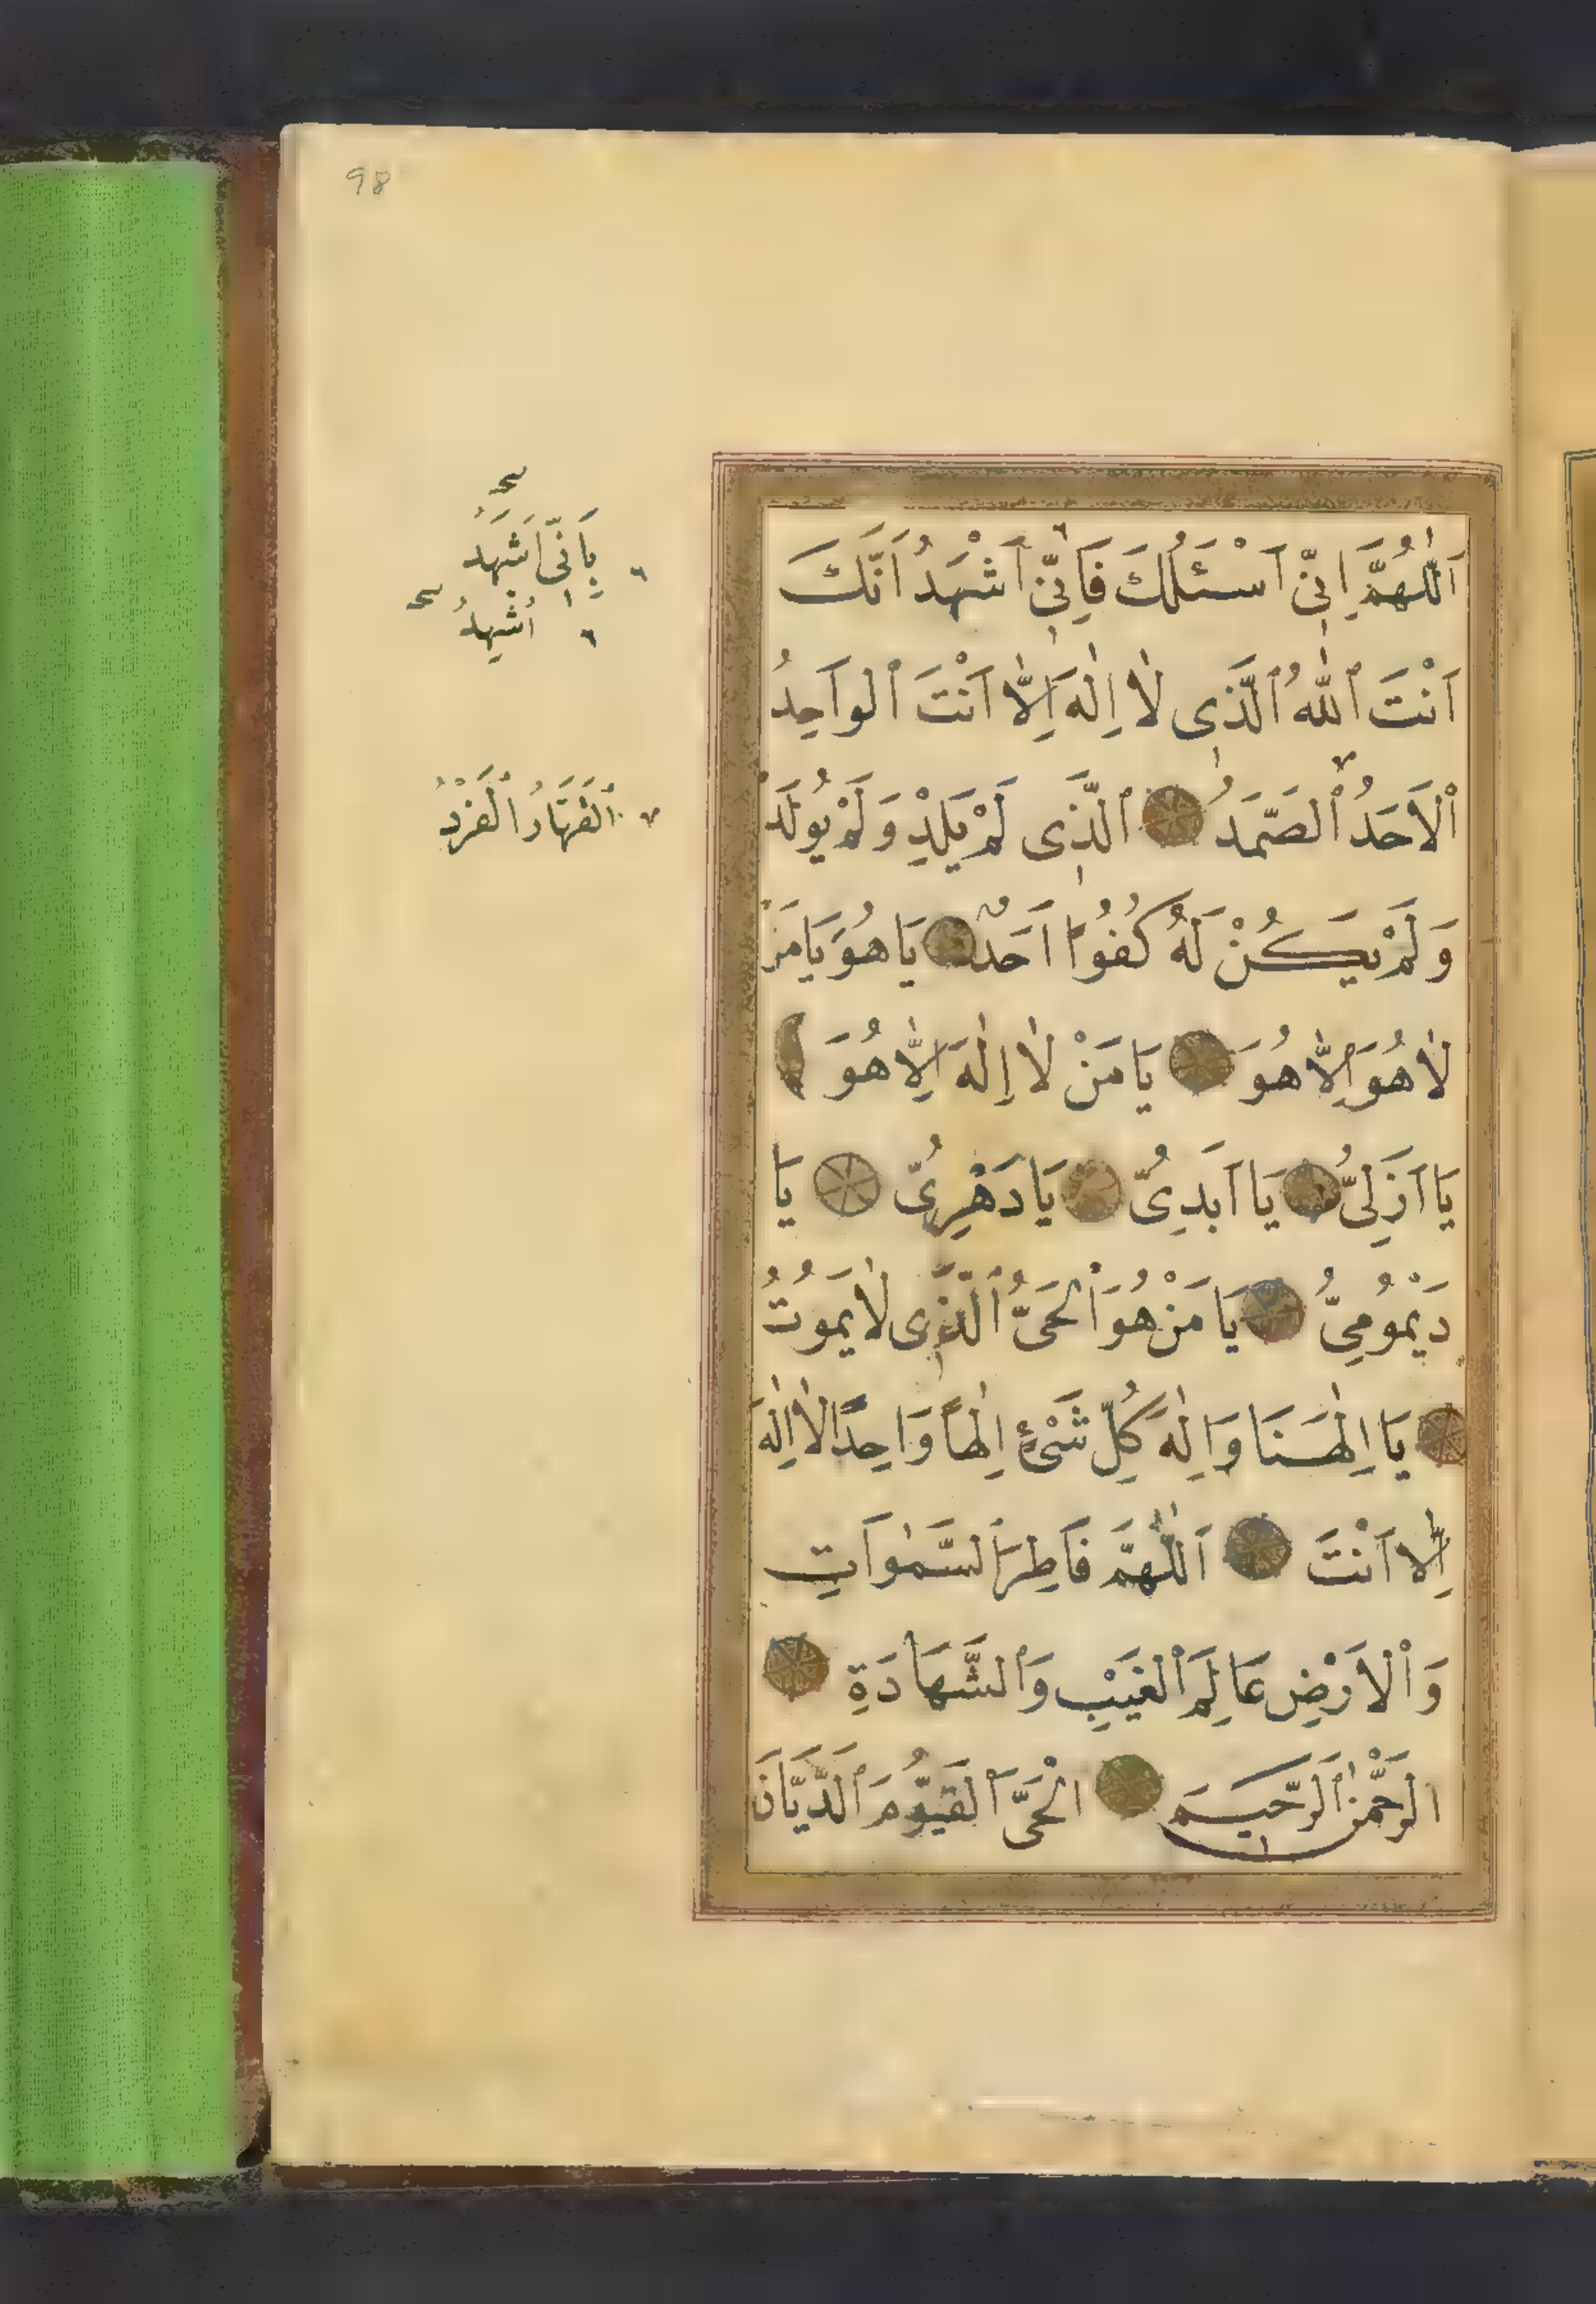 98
اَللّٰهُمَّ اِنِّي اَسْئَلُكَ فَاِنِّي اَشْهَدُ اَنَّكَ
اَنْتَ ٱللّٰهُ ٱلَّذِى لٰا اِلٰهَ اِلّٰا اَنْتَ ٱلوَاحِدُ
ٱلْاَحَدُ ٱلصَّمَدُ ٱلَّذِى لَمْ يَلِدْ وَلَمْ يُولَدْ
وَلَمْ يَكُنْ لَهُ كُفُوًا اَحَدٌ يَا هُوَ يَا مَنْ
لٰا هُوَ اِلّٰا هُوَ يَا مَنْ لٰا اِلٰهَ اِلّٰا هُوَ
يَا اَزَلِىُّ يَا اَبَدِىُّ يَا دَهْرِىُّ يَا
دَيْمُومِىُّ يَا مَنْ هُوَ ٱلْحَىُّ ٱلَّذِى لٰا يَمُوتُ
يَا اِلٰهَنَا وَاِلٰهَ كُلِّ شَىْءٍ اِلٰهًا وَاحِدًا لٰا اِلٰهَ
اِلّٰا اَنْتَ اَللّٰهُمَّ فَاطِرَ ٱلسَّمٰوَاتِ
وَٱلْاَرْضِ عَالِمَ ٱلْغَيْبِ وَٱلشَّهَادَةِ
الرَّحْمٰنَ ٱلرَّحِيمَ الْحَىَّ ٱلْقَيُّومَ ٱلدَّيَّانَ
بِاَنِّى اَشْهَدُ
اُشْهِدُ
ٱلْقَهَّارُ ٱلْفَرْدُ